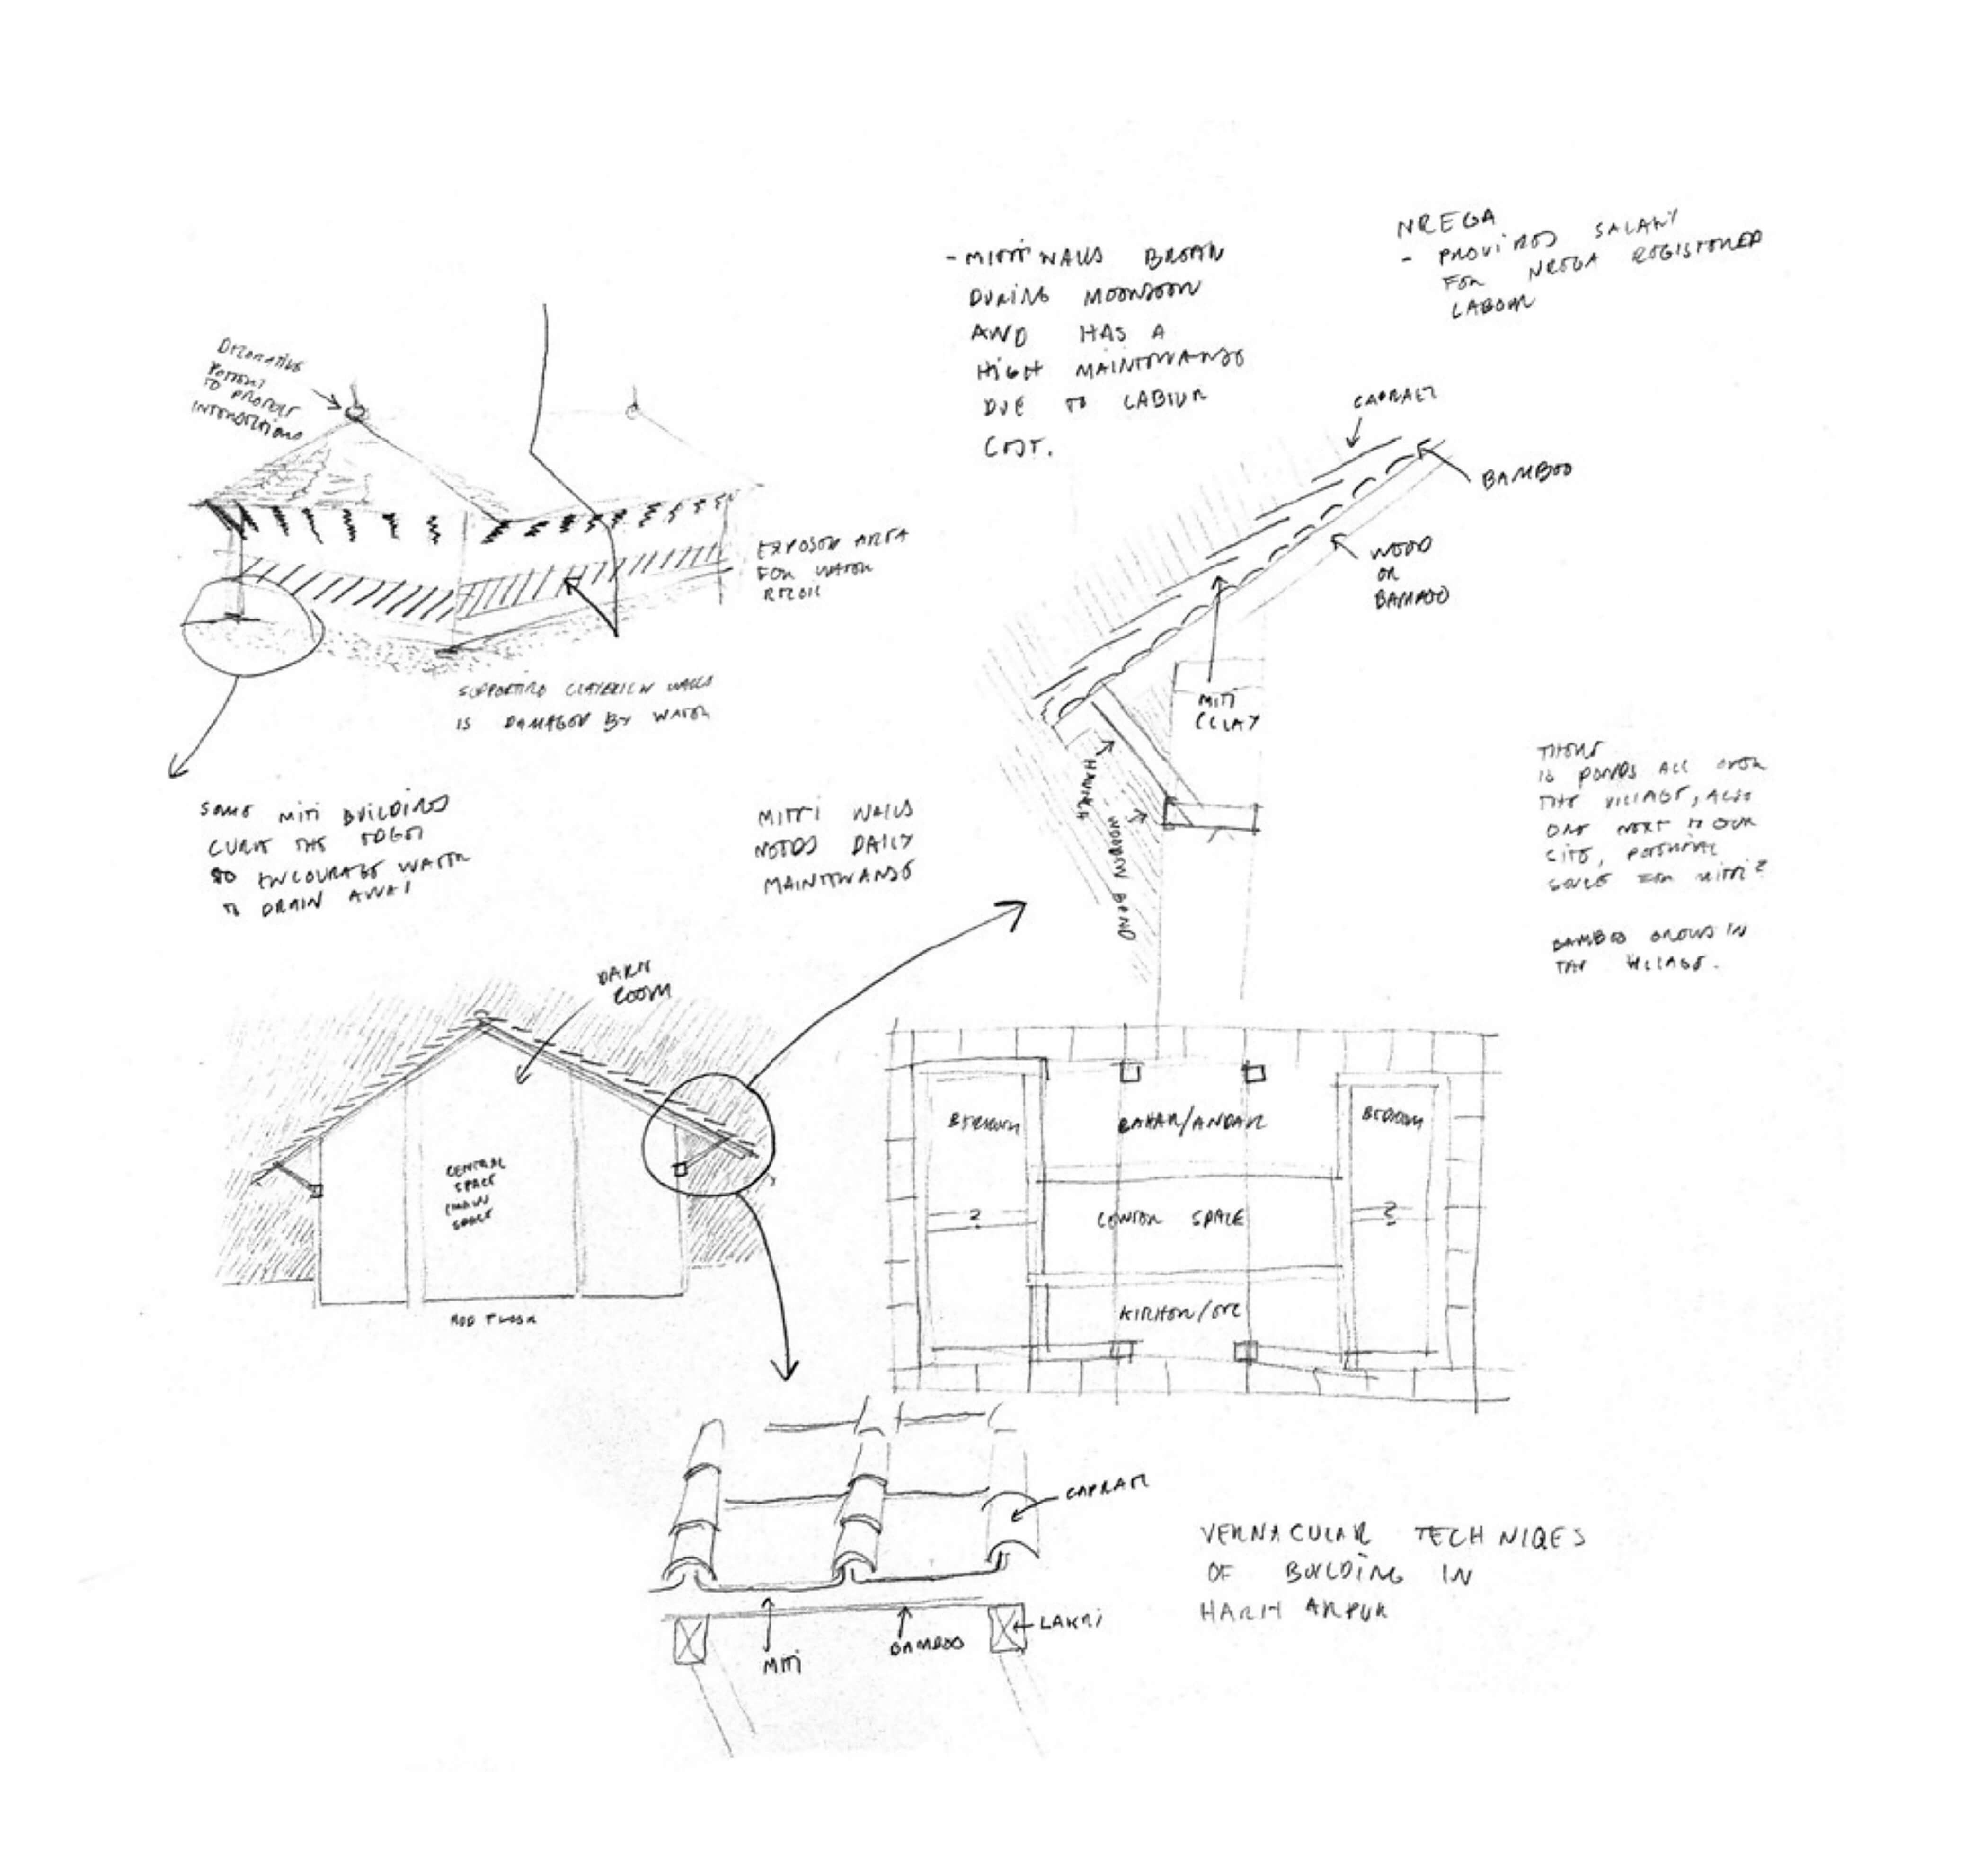 NREGA
- PROVIDES SALARY
FOR NREGA REGISTERED
LABOUR
- MITTI WALLS BREAK
DURING MOONSOON
AND HAS A
HIGH MAINTENANSE
DUE TO LABIUR
COST.
DECORATIVE
TO PROTECT
INTERSECTIONS
CAPRAEL
BAMBOO
WOOD
OR
BAMBOO
EXPOSED AREA
FOR WATER
RECOIL
SUPPORTING CLAYBRICK WALLS
IS DAMAGED BY WATER
MITI
(CLAY
HAUNCH
WOODEN BEND
SOME MITI BUILDINGS
CURVE THE EDGES
SO ENCOURAGE WATER
TO DRAIN AWAI
MITTI WALLS
NEEDS DAILY
MAINTENANSE
THERE
IS PONDS ALL OVER
THE VILLAGE, ALSO
ONE NEXT TO OUR
SITE, POTENTIAL
SOURCE FOR MITTI?
BAMBOO GROWS IN
THE VILLAGE.
DARK
ROOM
CENTRAL
SPACE
(MAIN
SPACE
MUD FLOOR
BEDROOM
BAHAR/ANDAR
BEDROOM
?
CENTER SPACE
?
KITCHEN/ETC
CAPRAEL
LAKRI
MITI
BAMBOO
VERNACULAR TECHNIQES
OF BUILDING IN
HARIHARPUR